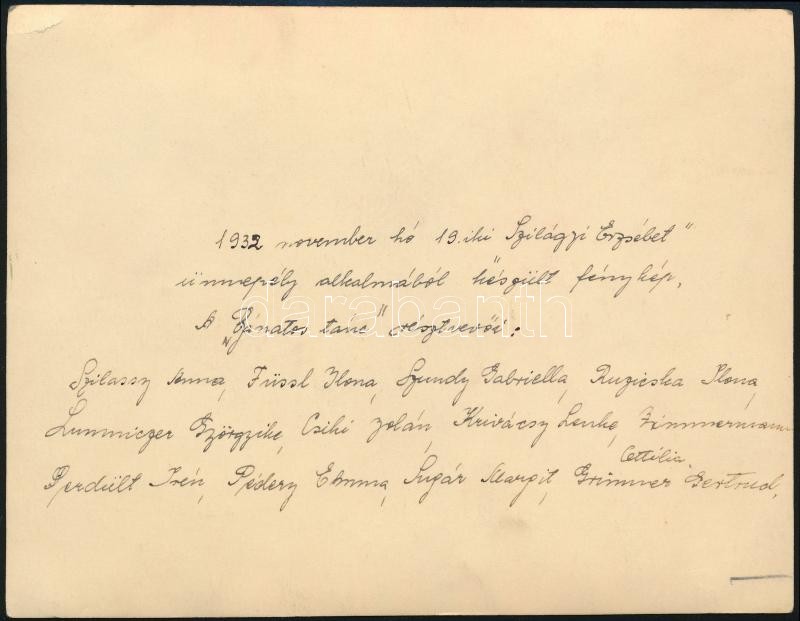 1932 november hó 19.iki Szilágyi Erzsébet"
ünnepély alkalmából készült fénykép.
A „Bánatos tánc" résztvevői:
Szilassy Anna, Füssl Ilona, Szundy Gabriella, Ruzicska Ilona,
Lumniczer Györgyike, Csiki Jolán, Krivácsy Lenke, Zimmermann
Cettilia,
Perdült Irén, Pédery Emma, Sugár Margit, Grimmer Gertrud,
darabanth